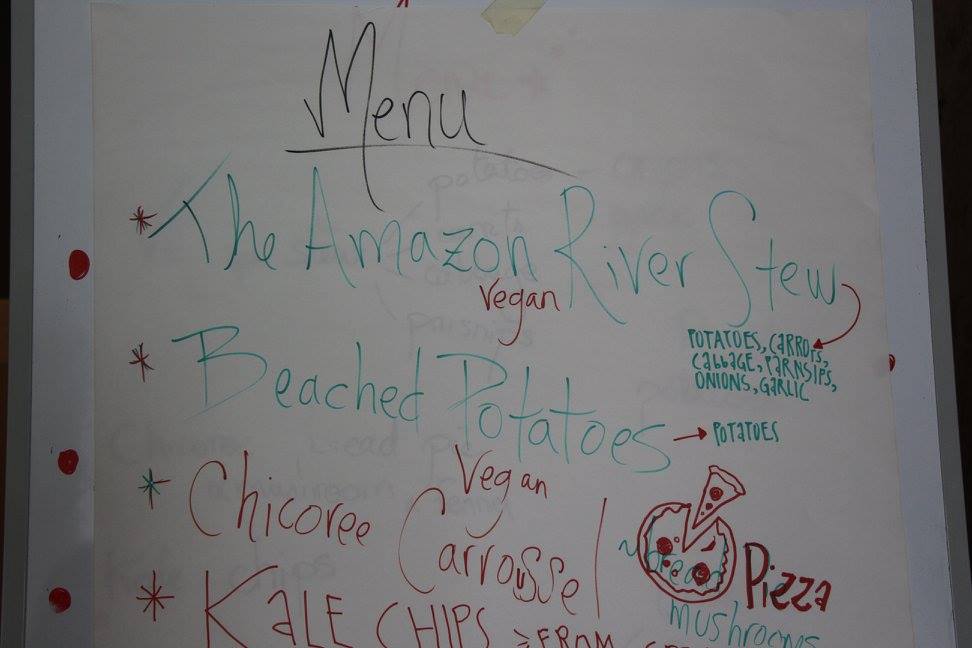 Menu
* The Amazon River Stew
Vegan
POTATOES, CARROTS,
CABBAGE, PARNSIPS,
ONIONS, GARLIC
* Beached Potatoes → POTATOES
Vegan
* Chicoree Carrousse
Piezza
mushrooms
* KALE CHIPS → FROM